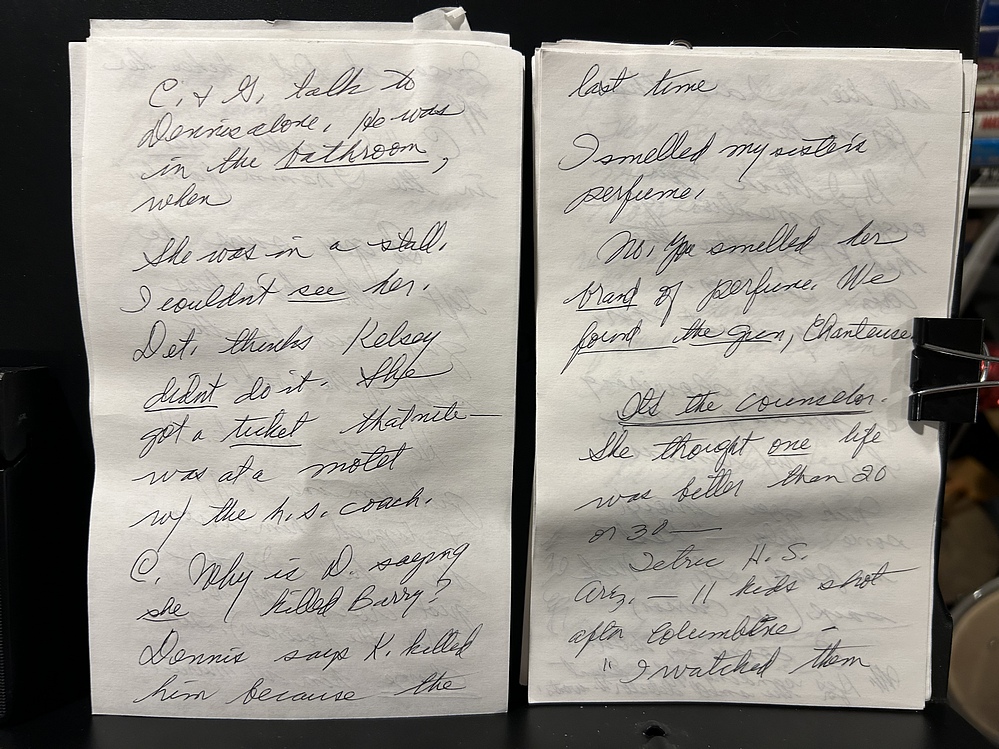 C. & G. talk to
Dennis alone. He was
in the bathroom,
when
She was in a stall.
I couldn't see her.
Det. thinks Kelsey
didnt do it. She
got a ticket that nite —
was at a motel
w/ the h.s. coach.
C. Why is D. saying
she killed Barry?
Dennis says K. killed
him because the
last time
I smelled my sister's
perfume.
No. You smelled her
brand of perfume. We
found the gun, Chanteuse
Its the counselor.
She thought one life
was better than 20
or 30 —
H.S.
Ariz. — 11 kids shot
after Columbine —
" I watched them